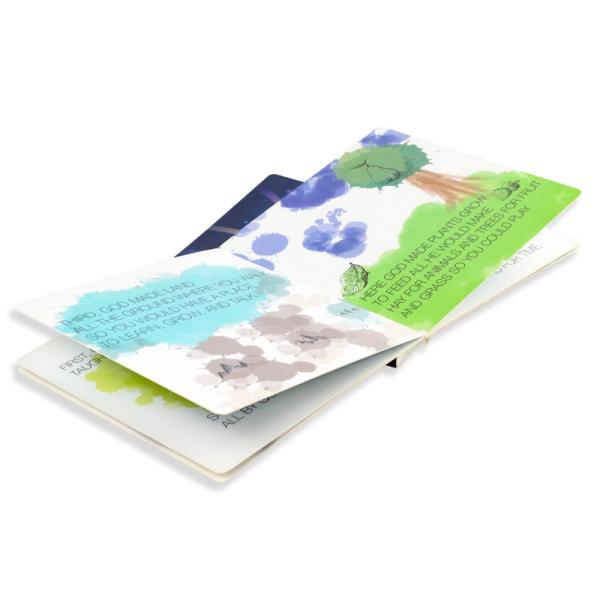 THIRD, GOD MADE LAND
ALL THE GROUND WHERE YOU WALK
SO YOU WOULD HAVE A PLACE
TO LEARN, GROW, AND TALK
HERE GOD MADE PLANTS GROW
TO FEED ALL HE WOULD MAKE
HAY FOR ANIMALS AND TREES FOR FRUIT
AND GRASS SO YOU COULD PLAY
FIRST,
TAUGH
S
ALL BY
FOR TIME